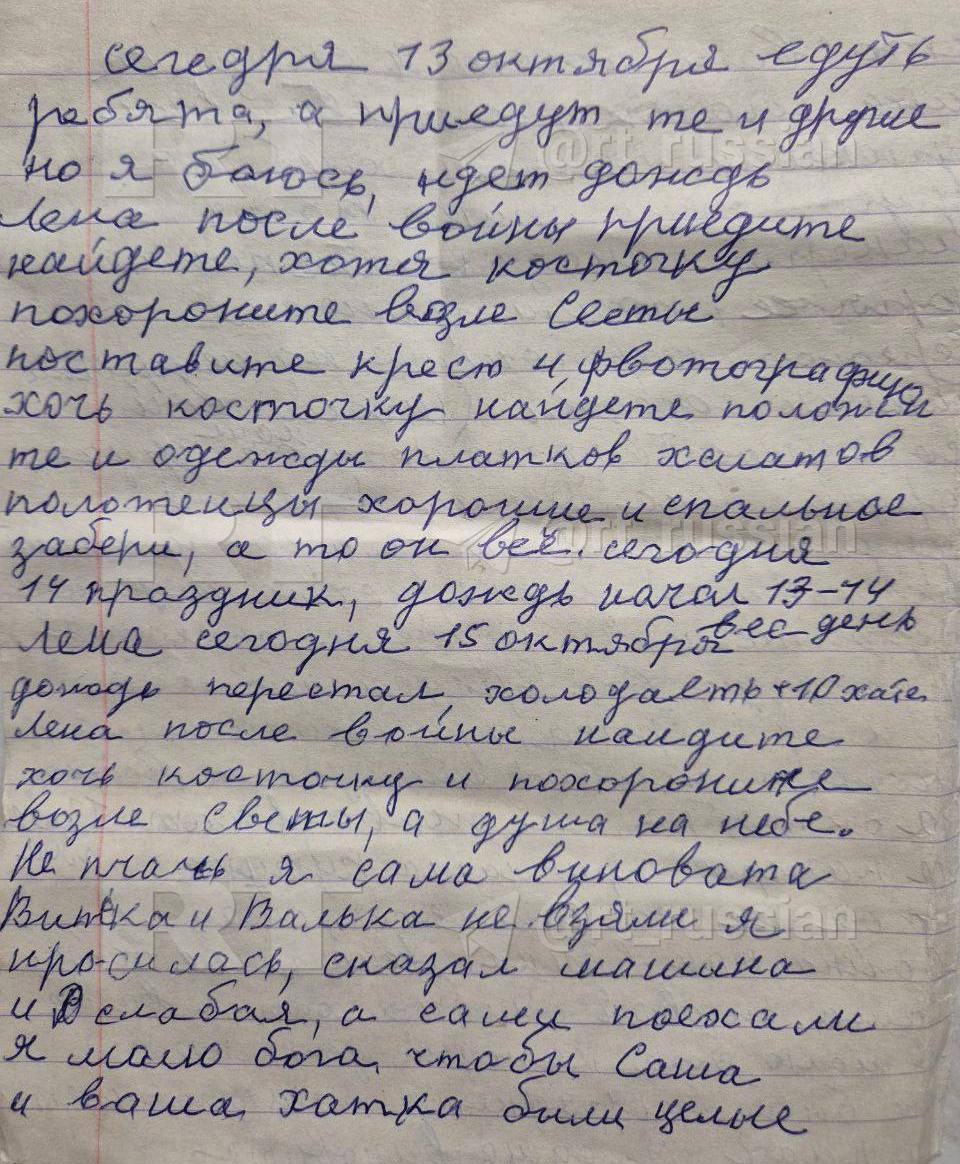 сегедря 13 октября едуть
ребята, а приедут те и другие
но я боюсь, идет дождь
Лена после войны приедите
найдете, хотя косточку
похороните возле Сесты
поставите крест и фвотографию
хочь косточку найдете положи
те и одежды платков халатов
полотенцы хорошие и спальное
забери, а то он веч. сегодня
14 праздник, дождь начал 13-14
Лена сегодня 15 октября вес день
дождь перестал, холодаеть +10 хате
Лена после войны наидите
хочь косточку и похороните
возле Светы, а душа на небе.
Не плачь я сама виновата
Витька и Валька не взяли я
просилась, сказал машина
и слабая, а сами поехали
я малю бога, чтобы Саша
и ваша хатка били целые
@rt_russian
@rt_russian
@rt_russian